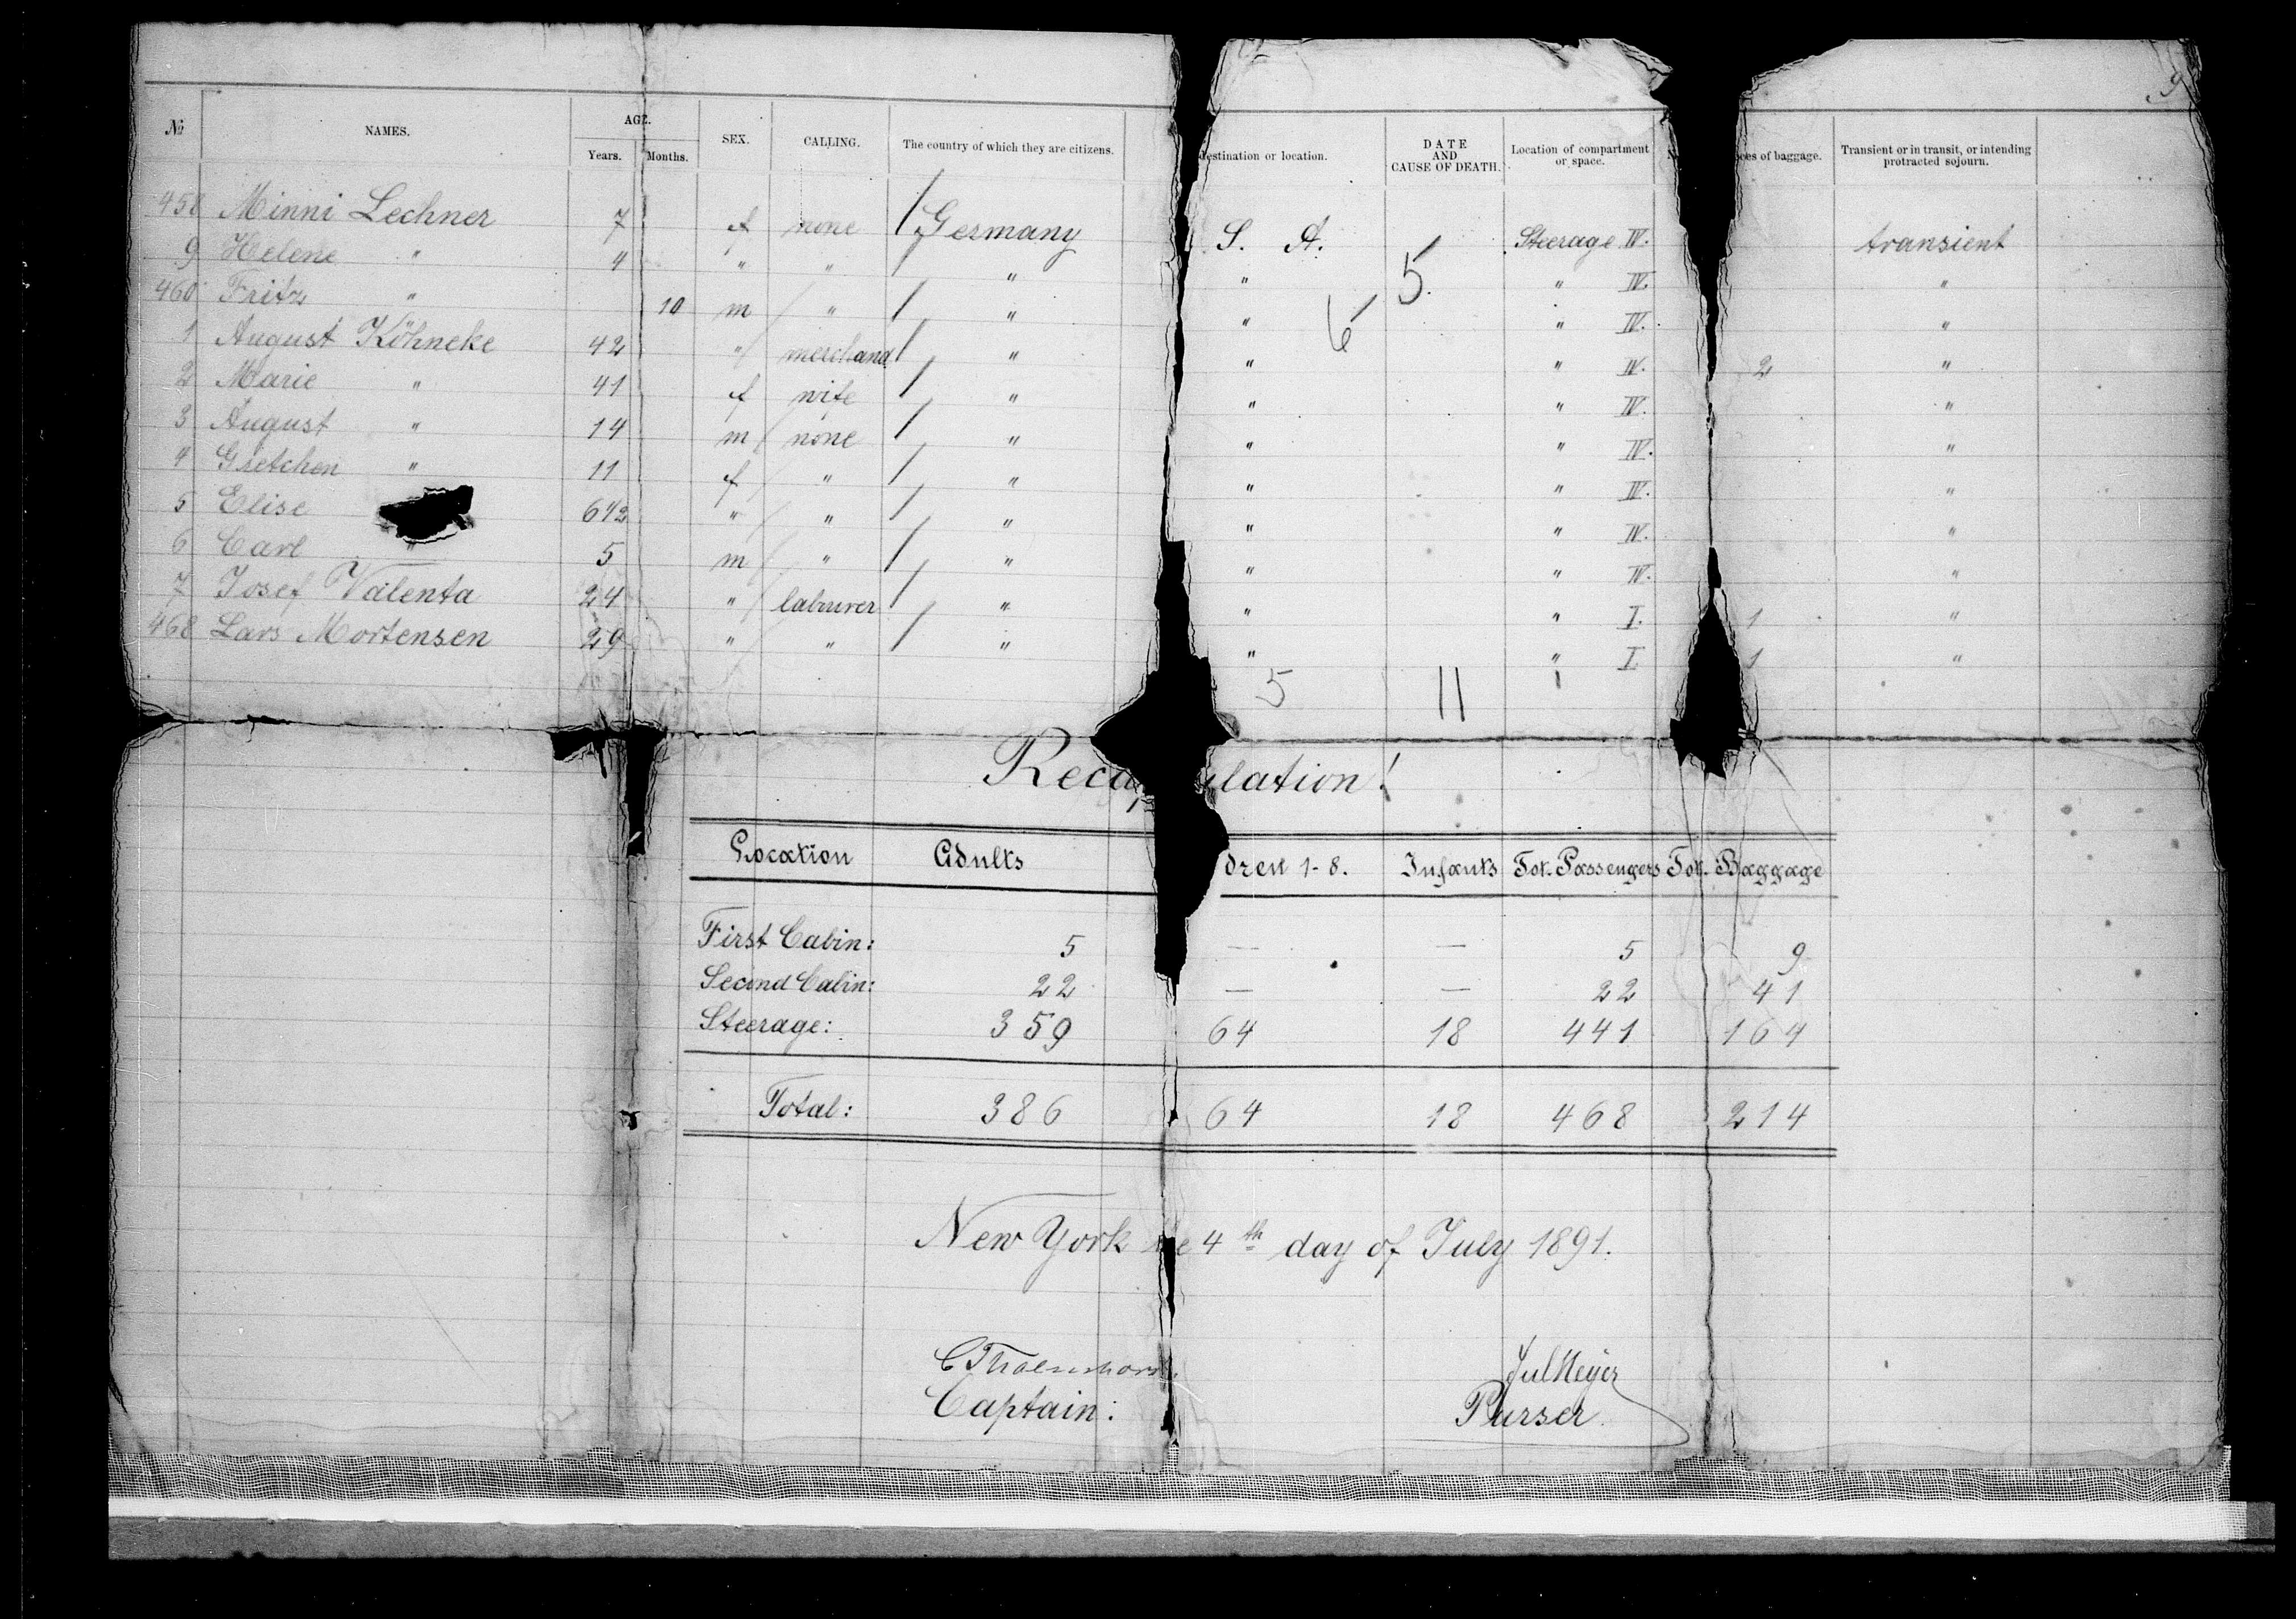 9
№ NAMES. AGE. Years. Months. SEX. CALLING. The country of which they are citizens. destination or location. DATE AND CAUSE OF DEATH. Location of compartment or space. ces of baggage. Transient or in transit, or intending protracted sojourn.
458 Minni Lechner 7 f none Germany S. A. Steerage IV. transient
9 Helene " 4 " " " " " IV. "
460 Fritz " 10 m " " " " IV. "
1 August Köhneke 42 " merchand " " " IV. 2 "
2 Marie " 41 f wife " " " IV. "
3 August " 14 m none " " " IV. "
4 Gretchen " 11 f " " " " IV. "
5 Elise " " " " " IV. "
6 Carl " 5 m " " " " IV. "
7 Josef Valenta 24 " labourer " " " I. 1 "
468 Lars Mortensen 29 " " " " " I. 1 "
5 6
5 11
Recap ulation!
Location Adults dren 1-8. Infants Tot. Passengers Tot. Baggage
First Cabin: 5 — — 5 9
Second Cabin: 22 — — 22 41
Steerage: 359 64 18 441 164
Total: 386 64 18 468 214
New York e 4th day of July 1891.
Jul Meyer
Captain: Purser